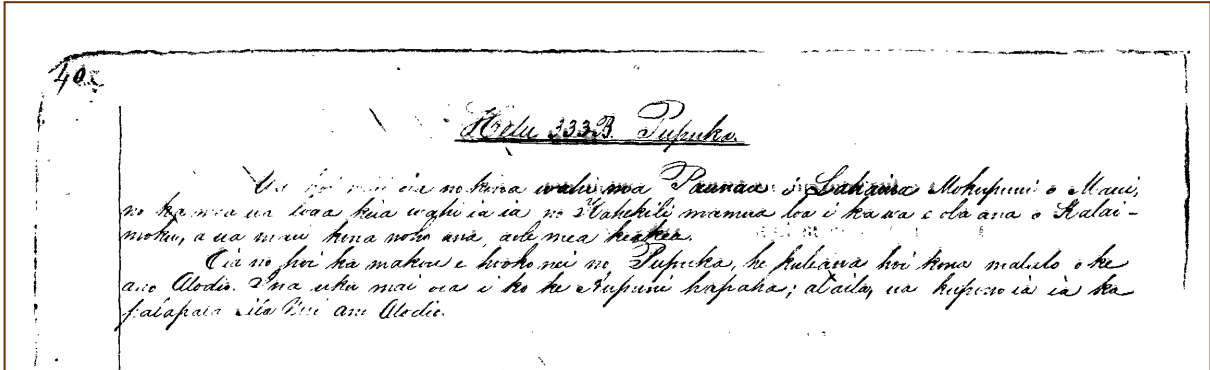 40
Helu 333B. Pupuka.
Ua hoi mai oia no kona wahi ma Paunau i Lahaina Mokupuni o Maui,
no ka mea ua loaa keia wahi ia ia no Kahekili mamua loa i ka wa e ola ana o Kalai-
moku, a ua mau kona noho ana, aole mea keakea.
Oia no hoi ka makou e hooko nei no Pupuka, he kuleana hoi kona malalo o ke
ano Alodio. Ina uku mai oia i ko ke Aupuni hapaha; alaila, ua kupono ia ia ka
palapala Sila Nui ano Alodio.